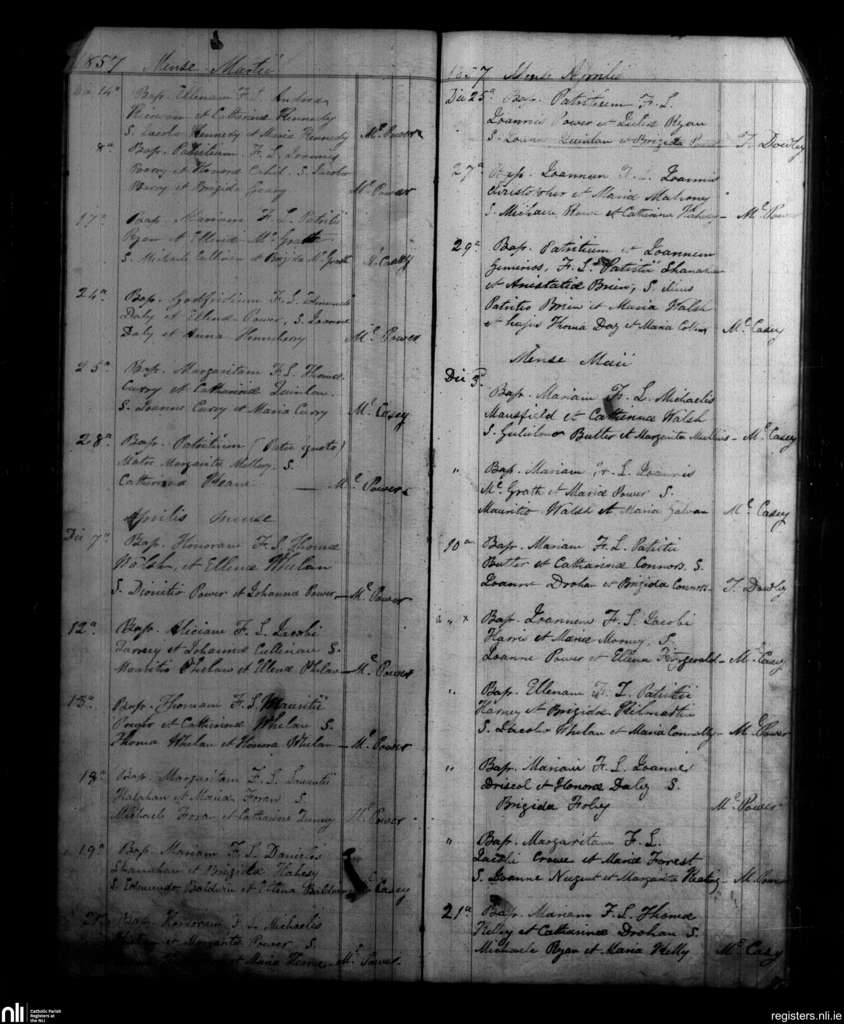 1857 Mense Martii
Die 14ª Bap. Ellenam F. L. Andreae
et Catherinae Kennedy
S. Jacobo Kennedy et Maria Kennedy Mc. Power
8ª Bap. Patritium F. L. Joannis
Barry et Honora Cahil. S. Jacobo
Barry et Brigida Geary Mc. Power
17ª Bap. Mariam F. L. Patritii
Ryan et Ellena Mc. Grath
S. Michaele et Brigida Mc. Grath Mc. Casey
24ª Bap. Godfridium F. L. Edmundi
Daly et Ellena Power, S. Joanne
Daly et Anna Hennebery Mc. Power
25ª Bap. Margaritam F. L. Thomae
Curry et Catharina Quinlan
S. Joanne Curry et Maria Curry Mc. Casey
28ª Bap. Patritium (Patre ignoto)
Matre Margarita S.
Catherina Mc. Power
Aprilis mense
Die 7ª Bap. Honoram F. L. Thomae
Walsh, et Ellena Whelan
S. Dionitio Power et Johanna Power Mc. Power
12ª Bap. Aliciam F. L. Jacobi
et Johanna Cullinan S.
Mauritio Phelan et Ellena Phelan Mc. Power
15ª Bap. Thomam F. L. Mauritii
Power et Catherina Whelan S.
Thoma Whelan et Honora Whelan Mc. Power
18ª Bap. Margaritam F. L. Laurentii
Halahan et Maria Foran S.
Michaele Foran et Catharina Mc. Power
19ª Bap. Mariam F. L. Danielis
Shanahan et Brigida Fahesy
S. Edmundo Baldwin et Ellena Baldwin Mc. Casey
Bap. Honoram F. L. Michaelis
et Margarita Power S.
et Maria Mc. Power
1857 Mense Aprilis
Die 25ª Bap. Patritium F. L.
Joannis Power et Julia Ryan
S. Joanne Quinlan et Brigida T. Dowley
27ª Bap. Joannem F. L. Joannis
Christopher et Maria Mahony
S. Michaele et Catherina Fahesy Mc. Power
29ª Bap. Patritium et Joannem
Geminos, F. L. Patritii Shanahan
et Anistatia Brien, S. illius
Patritio Brien et Maria Walsh
et hujus Thoma Day et Maria Collins Mc. Casey
Mense Maii
Die 3ª Bap. Mariam F. L. Michaelis
Mansfield et Catherina Walsh
S. Gulielmo Butler et Margarita Mullins Mc. Casey
" Bap. Mariam F. L. Joannis
Mc. Grath et Maria Power S.
Mauritio Walsh et Maria Galvan Mc. Casey
10ª Bap. Mariam F. L. Patritii
Butler et Catharina Connors. S.
Joanne Drohan et Brigida Connors T. Dowley
" Bap. Joannem F. L. Jacobi
Harris et Maria Morney, S.
Joanne Power et Ellena Fitzgerald Mc. Casey
" Bap. Ellenam F. L. Patritii
Harney et Brigida Kilmartin
S. Jacobo Whelan et Maria Connolly Mc. Power
" Bap. Mariam F. L. Joannis
Driscol et Honora Daley S.
Brigida Foley Mc. Power
" Bap. Margaritam F. L.
Crowe et Maria Forrest
S. Joanne Nugent et Margarita Keating Mc. Power
21ª Bap. Mariam F. L. Thomae
Kelly et Catharina Drohan S.
Michaele Ryan et Maria Kelly Mc. Casey
nli
Catholic Parish
Registers at
the NLI
registers.nli.ie